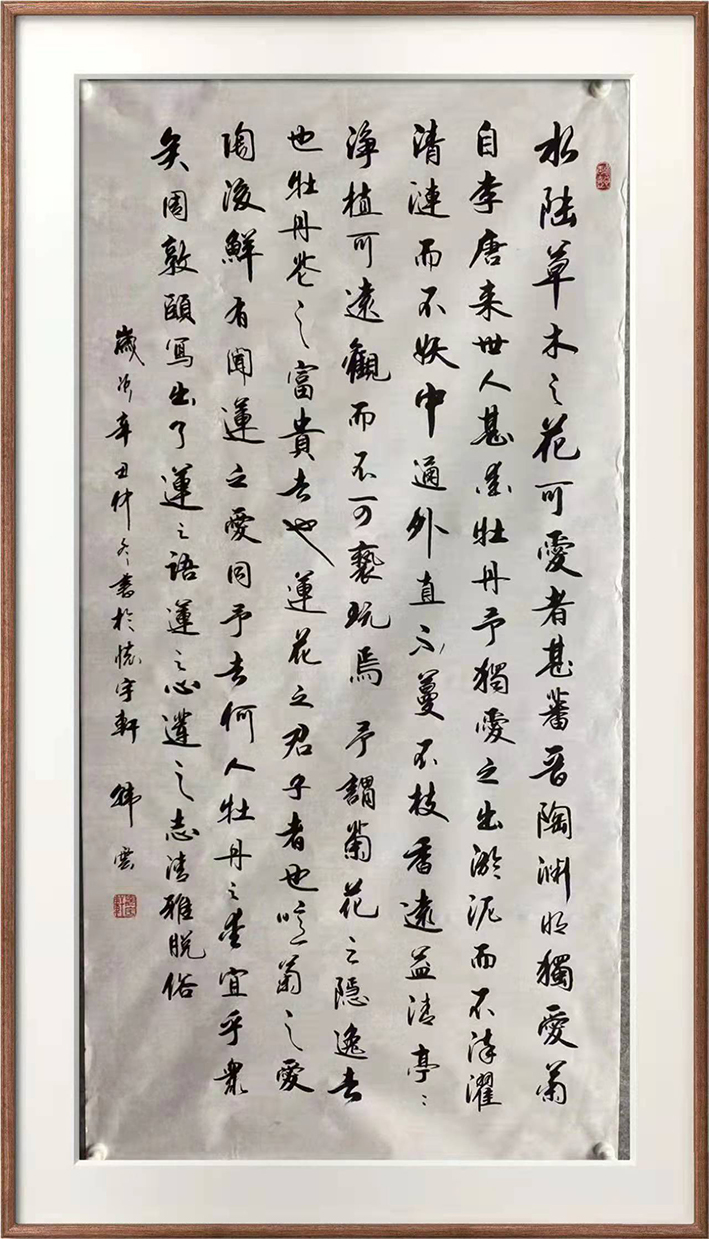 水陸草木之花可愛者甚蕃晉陶淵明獨愛菊
自李唐来世人甚愛牡丹予獨愛之出淤泥而不染濯
清漣而不妖中通外直不蔓不枝香遠益清亭〻
淨植可遠觀而不可褻玩焉 予謂菊花之隱逸者
也牡丹花之富貴者也蓮花之君子者也噫菊之愛
陶後鮮有聞蓮之愛同予者何人牡丹之愛宜乎眾
矣周敦頤寫出了蓮之語蓮之心蓮之志清雅脱俗
歲次辛丑仲冬書於懷宇軒 韓雲